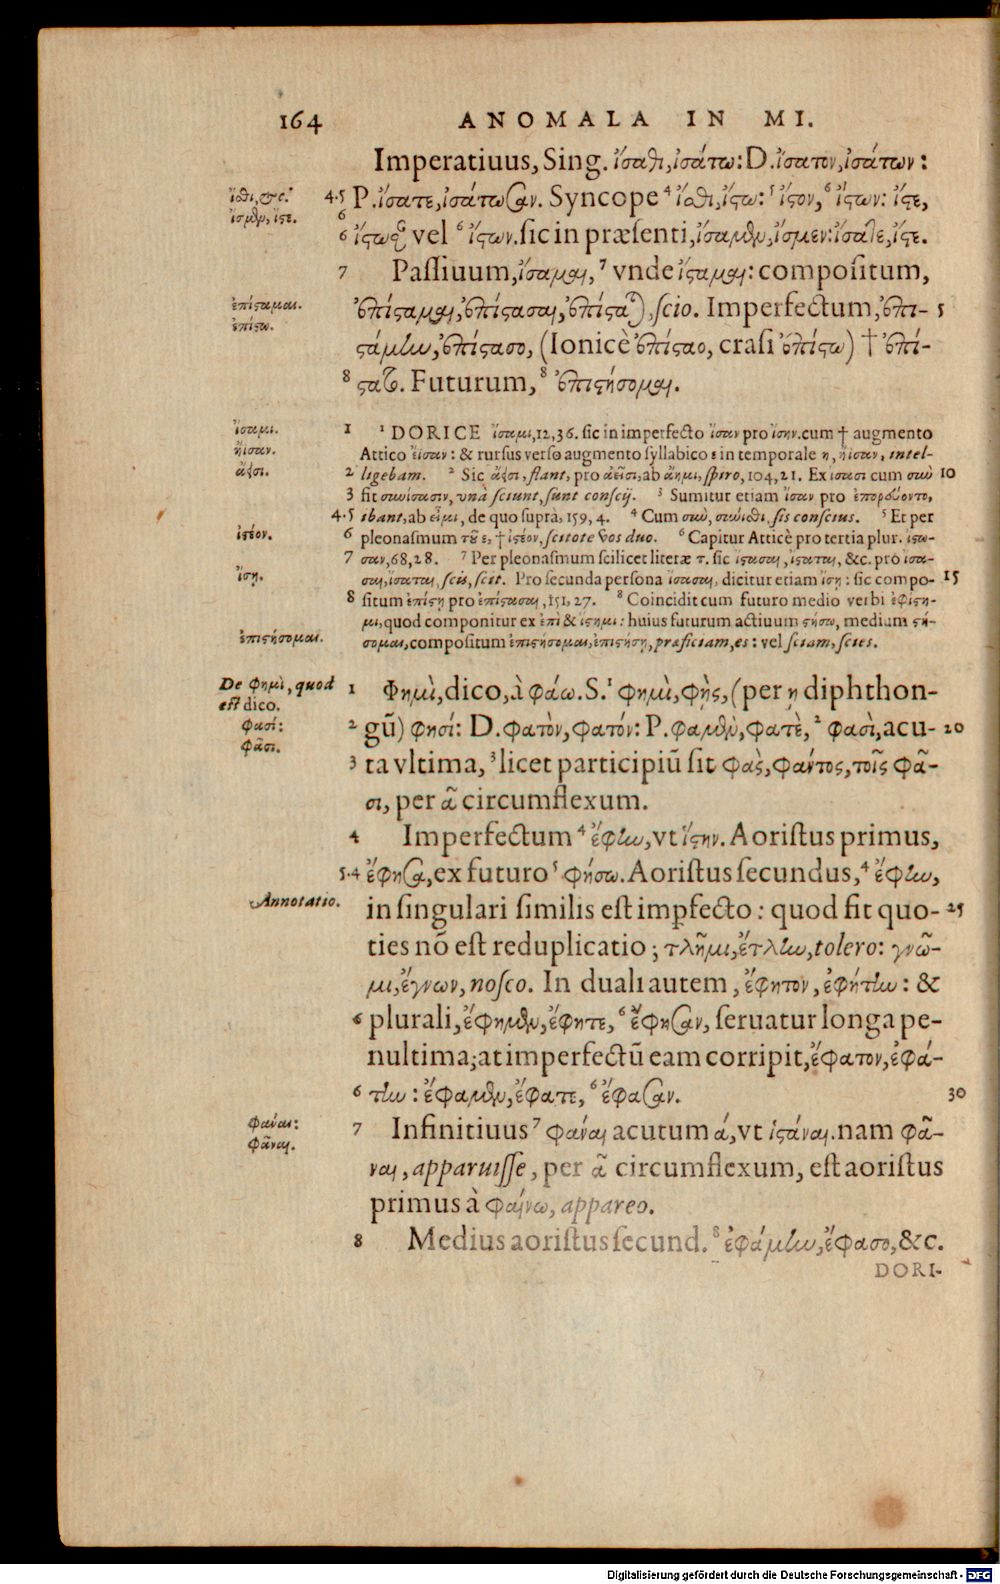 164 ANOMALA IN MI.
Imperatiuus, Sing. ἴσαθι, ἰσάτω: D. ἴσατον, ἰσάτων:
ἴσθι, &c. 4.5 P. ἴσατε, ἰσάτωσαν. Syncope ⁴ ἴσθι, ἴςω: ⁵ ἴςον, ⁶ ἴςων: ἴςε,
ἴσμεν, ἴςε. 6
6 ἴςωσαν vel ⁶ ἴςων. sic in præsenti, ἴσαμεν, ἴσμεν: ἴσατε, ἴςε.
7 Paſſiuum, ἴσαμαι, ⁷ vnde ἴςαμαι: compoſitum,
ἐπίςαμαι. ἐπίςαμαι, ἐπίςασαι, ἐπίςαται, ſcio. Imperfectum, ἐπι- 5
ἐπίςω.
ςάμην, ἐπίςασο, (Ionicè ἐπίςαο, craſi ἐπίςω) † ἐπί-
8 ςατο. Futurum, ⁸ ἐπιςήσομαι.
ἴσαμι. 1 ¹ DORICE ἴσαμι, 12, 36. ſic in imperfecto ἴσαν pro ἴσην. cum † augmento
ἤισαν. Attico εἴσαν: & rurſus verſo augmento ſyllabico ε in temporale η, ἤισαν, intel-
ἄεισι. 2 ligebam. ² Sic ἄεισι, flant, pro ἀεῖσι, ab ἄημι, ſpiro, 104, 21. Ex ἴσασι cum σὺν 10
3 fit συνίσασιν, vnà ſciunt, ſunt conſcij. ³ Sumitur etiam ἴσαν pro ἐπορεύοντο,
4.5 ibant, ab εἶμι, de quo ſuprà, 159, 4. ⁴ Cum σὺν, σύνισθι, ſis conſcius. ⁵ Et per
ἰςέον. 6 pleonaſmum τοῦ ε, † ἰςέον, ſcitote vos duo. ⁶ Capitur Atticè pro tertia plur. ἴςω-
7 σαν, 68, 28. ⁷ Per pleonaſmum ſcilicet literæ τ. ſic ἴςασαι, ἴςαται, &c. pro ἴσα-
ἴση. σαι, ἴσαται, ſcis, ſcit. Pro ſecunda perſona ἴσασαι, dicitur etiam ἴση: ſic compo- 15
8 ſitum ἐπίςῃ pro ἐπίςασαι, 151, 27. ⁸ Coincidit cum futuro medio verbi ἐφίςη-
μι, quod componitur ex ἐπὶ & ἵςημι: huius futurum actiuum ςήσω, medium ςή-
ἐπιςήσομαι. σομαι, compoſitum ἐπιςήσομαι, ἐπιςήσῃ, præficiam, es: vel ſciam, ſcies.
De φημὶ, quod 1 Φημὶ, dico, à φάω. S. ¹ φημὶ, φῂς, (per ῃ diphthon-
eſt dico.
φασί: 2 gū) φησί: D. φατὸν, φατόν: P. φαμὲν, φατὲ, ² φασὶ, acu- 20
φᾶσι.
3 ta vltima, ³ licet participiū ſit φὰς, φάντος, τοῖς φᾶ-
σι, per ᾶ circumflexum.
4 Imperfectum ⁴ ἔφην, vt ἵςην. Aoriſtus primus,
5.4 ἔφησα, ex futuro ⁵ φήσω. Aoriſtus ſecundus, ⁴ ἔφην,
Annotatio. in ſingulari ſimilis eſt imꝑfecto: quod fit quo- 25
ties nō eſt reduplicatio; τλῆμι, ἔτλην, tolero: γνῶ-
μι, ἔγνων, noſco. In duali autem, ἔφητον, ἐφήτην: &
6 plurali, ἔφημεν, ἔφητε, ⁶ ἔφησαν, ſeruatur longa pe-
nultima; at imperfectū eam corripit, ἔφατον, ἐφά-
6 την: ἔφαμεν, ἔφατε, ⁶ ἔφασαν. 30
φάναι: 7 Infinitiuus ⁷ φάναι acutum ά, vt ἱςάναι. nam φᾶ-
φᾶναι.
ναι, apparuiſſe, per ᾶ circumflexum, eſt aoriſtus
primus à φαίνω, appareo.
8 Medius aoriſtus ſecund. ⁸ ἐφάμην, ἔφασο, &c.
DORI-
Digitalisierung gefördert durch die Deutsche Forschungsgemeinschaft - DFG